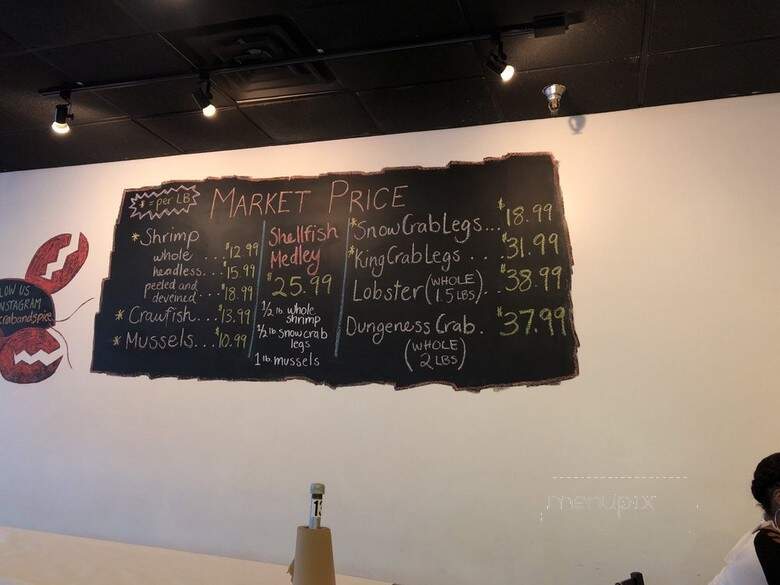 * = per LB
MARKET PRICE
*Shrimp
whole ... $12.99
headless... $15.99
peeled and
deveined... $18.99
* Crawfish... $13.99
* Mussels... $10.99
Shellfish
Medley
$25.99
1/2 lb. whole
shrimp
1/2 lb. snow crab
legs
1 lb. mussels
*Snow Crab Legs... $18.99
*King Crab Legs ... $31.99
Lobster (WHOLE 1.5 LBS).. $38.99
Dungeness Crab. $37.99
(WHOLE
2 LBS)
LOW US
NSTAGRAM
crabandspice
menupix